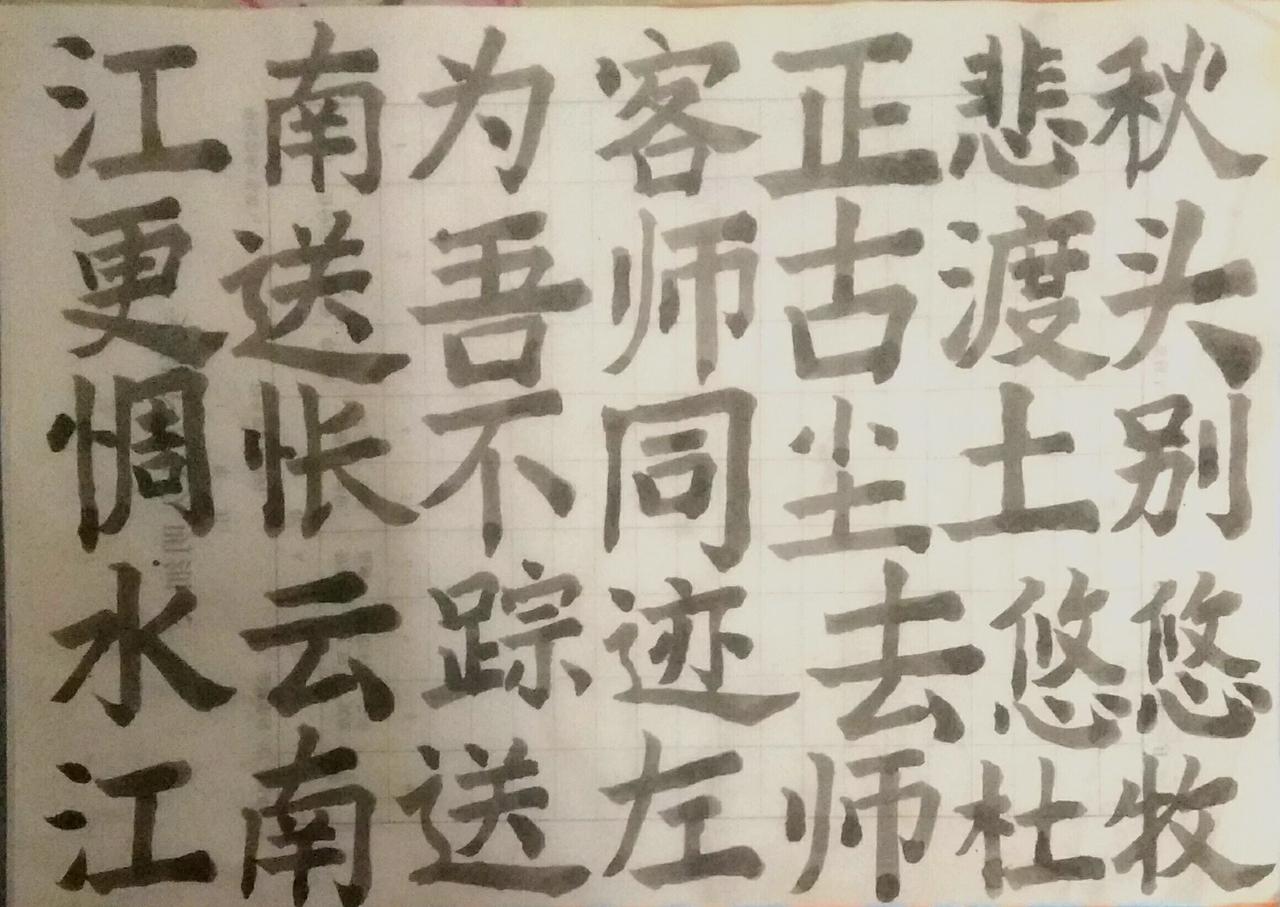 江南为客正悲秋
更送吾师古渡头
惆怅不同尘土别
水云踪迹去悠悠
江南送左师杜牧